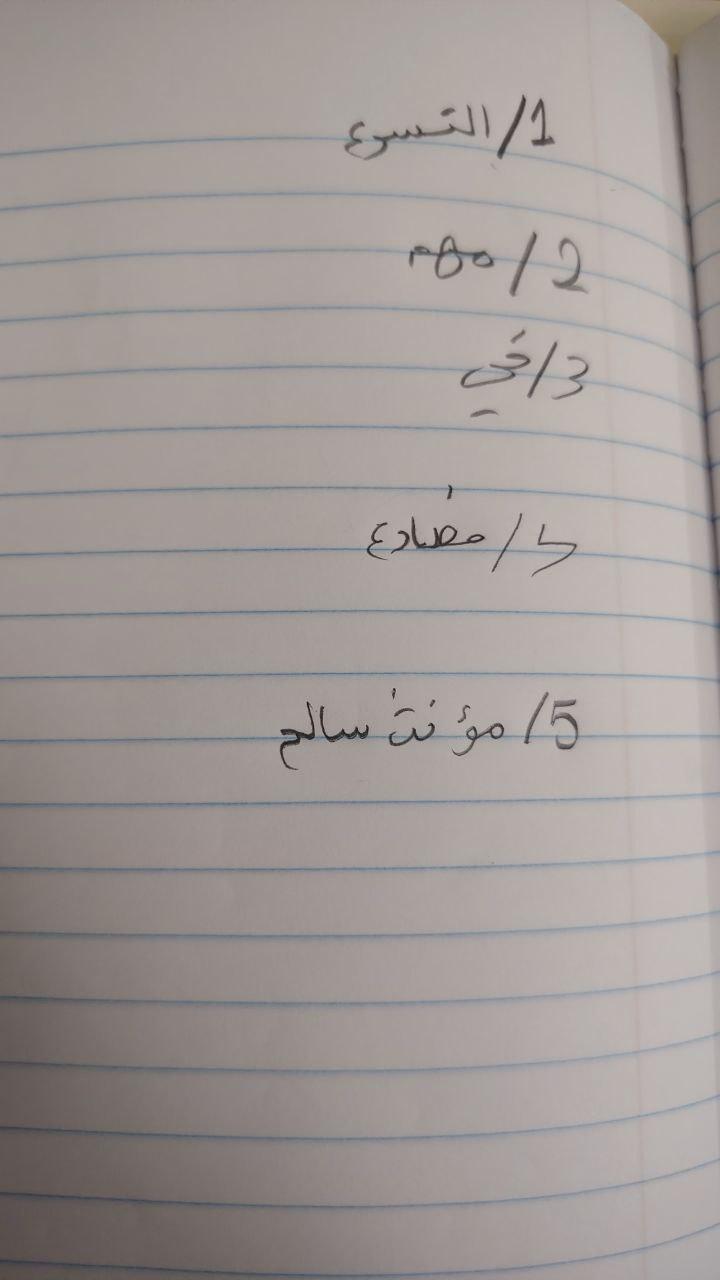 1/ التسرع
2/ مهم
3/ في
4/ مضارع
5/ مؤنث سالم